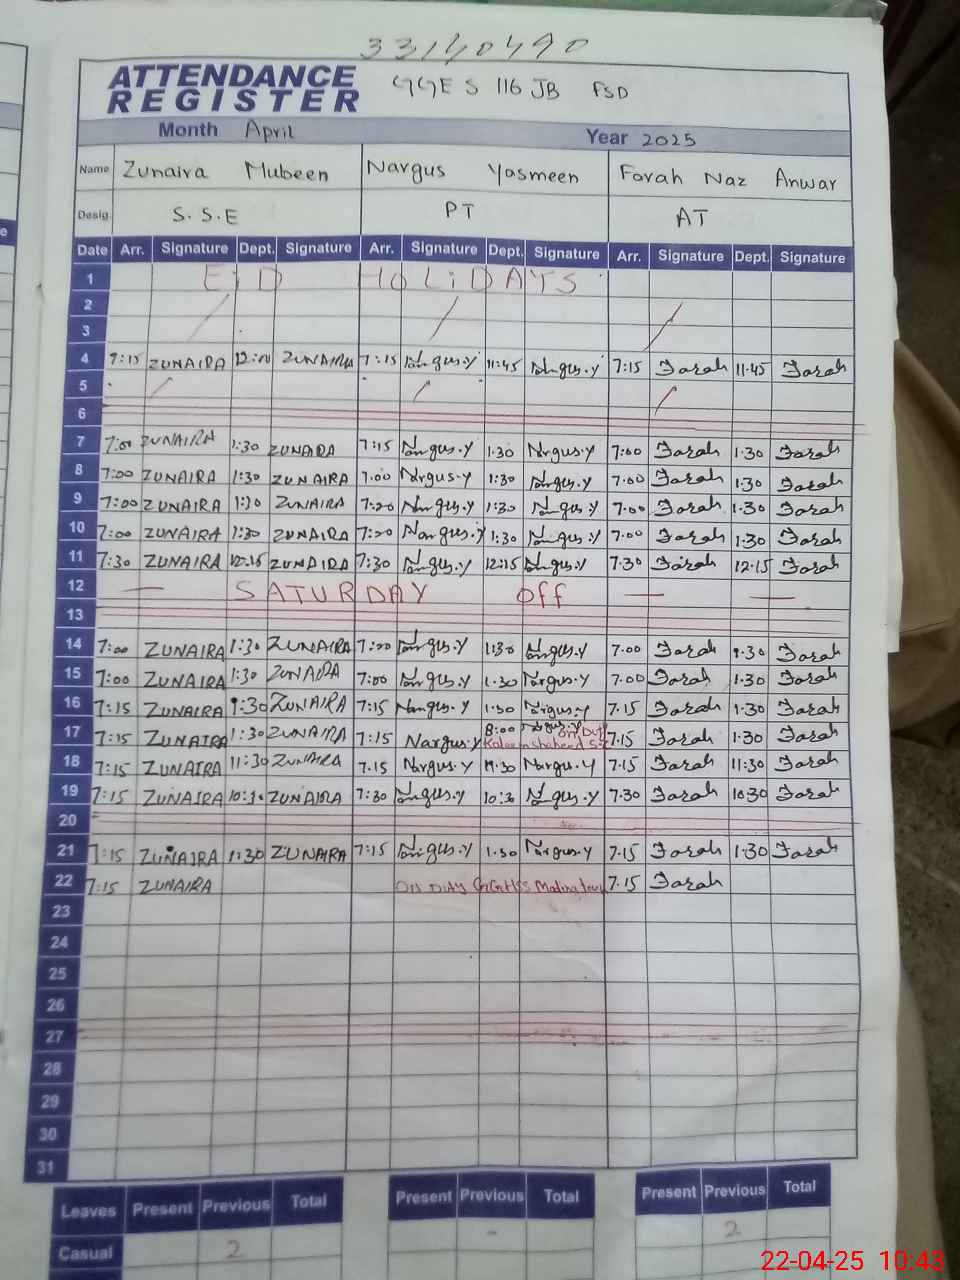 33140490
ATTENDANCE REGISTER GGES 116 JB FSD
Month April Year 2025
Name Zunaira Mubeen Nargus Yasmeen Farah Naz Anwar
Desig. S.S.E PT AT
Date Arr. Signature Dept. Signature Arr. Signature Dept. Signature Arr. Signature Dept. Signature
1 EiD HOLiDAYS
2
3
4 ZUNAIRA ZUNAIRA 7:15 Nargus.Y 11:45 Nargus.Y 7:15 Farah 11.45 Farah
5
6
7 7:00 ZUNAIRA 1:30 ZUNAIRA 7:15 Nargus.Y 1.30 Nargus.Y 7:00 Farah 1.30 Farah
8 7:00 ZUNAIRA 1:30 ZUNAIRA 7.00 Nargus.Y 1:30 Nargus.Y 7.00 Farah 1.30 Farah
9 7:00 ZUNAIRA 1:30 ZUNAIRA 7:00 Nargus.Y 1:30 Nargus.Y 7.00 Farah 1.30 Farah
10 7:00 ZUNAIRA 1:30 ZUNAIRA 7:00 Nargus.Y 1:30 Nargus.Y 7.00 Farah 1.30 Farah
11 7:30 ZUNAIRA 12:15 ZUNAIRA 7:30 Nargus.Y 12:15 Nargus.Y 7.30 Farah 12.15 Farah
12 — SATURDAY Off — —
13
14 7:00 ZUNAIRA 1:30 ZUNAIRA 7:00 Nargus.Y 1:30 Nargus.Y 7.00 Farah 1.30 Farah
15 7:00 ZUNAIRA 1:30 ZUNAIRA 7:00 Nargus.Y 1.30 Nargus.Y 7.00 Farah 1.30 Farah
16 7:15 ZUNAIRA 1:30 ZUNAIRA 7:15 Nargus.Y 1.30 Nargus.Y 7.15 Farah 1.30 Farah
17 7:15 ZUNAIRA 1:30 ZUNAIRA 7:15 Nargus.Y 8:00 Nargus.Y 7.15 Farah 1.30 Farah
18 7:15 ZUNAIRA 11:30 ZUNAIRA 7.15 Nargus.Y 11.30 Nargus.Y 7.15 Farah 11:30 Farah
19 7:15 ZUNAIRA 10:30 ZUNAIRA 7:30 Nargus.Y 10:30 Nargus.Y 7.30 Farah 10.30 Farah
20
21 7:15 ZUNAIRA 1:30 ZUNAIRA 7:15 Nargus.Y 1.30 Nargus.Y 7.15 Farah 1.30 Farah
22 7:15 ZUNAIRA GGHSS Madina town 7.15 Farah
23
24
25
26
27
28
29
30
31
Leaves Present Previous Total Present Previous Total Present Previous Total
Casual 2 - 2
22-04-25 10:43